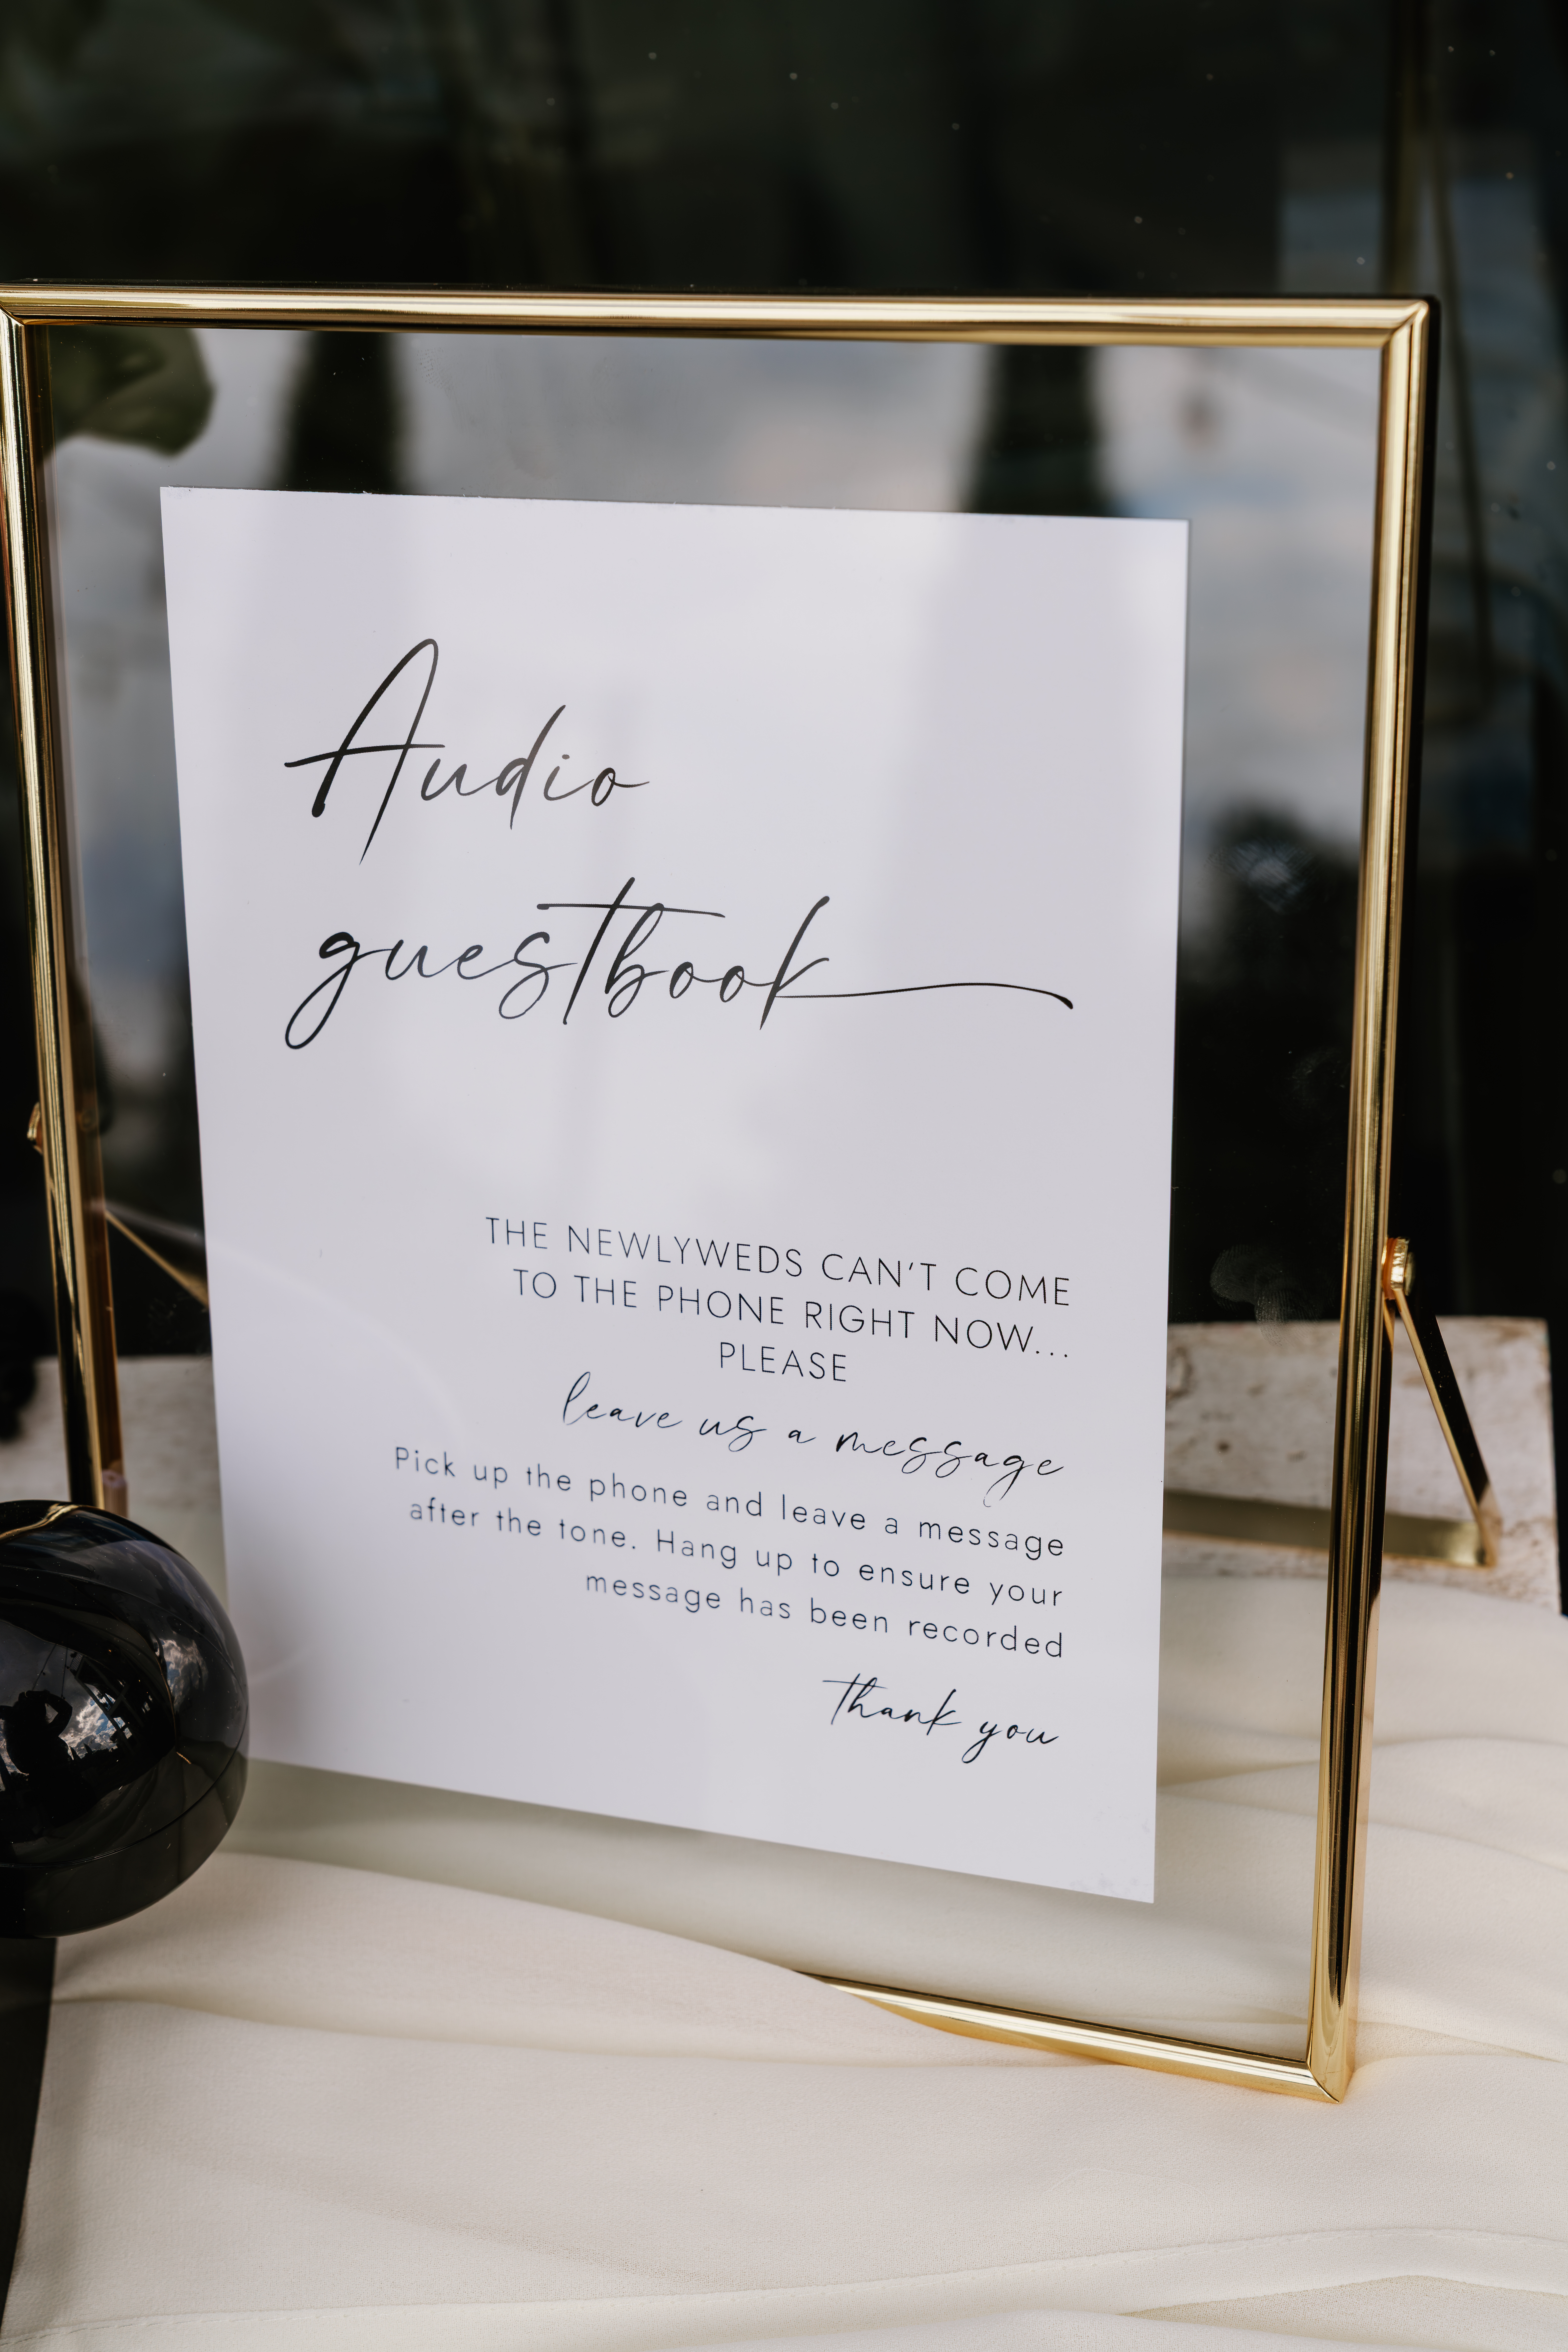 Audio
guestbook
THE NEWLYWEDS CAN'T COME
TO THE PHONE RIGHT NOW...
PLEASE
leave us a message
Pick up the phone and leave a message
after the tone. Hang up to ensure your
message has been recorded
thank you